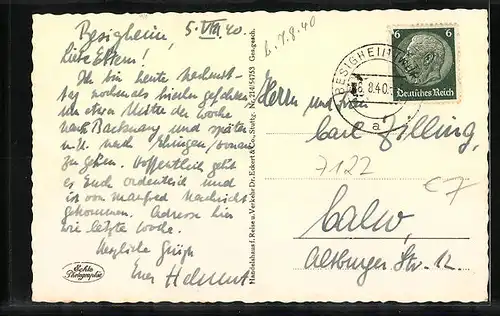 Besigheim, 5. VIII. 40.
Liebe Eltern!
Ich bin heute Nachmit-
tag nochmals hierher gefahren
um etwa Mitte der Woche
nach Backnang und später
nach Ehingen
zu gehen. Hoffentlich geht
es Euch ordentlich und
ist von Manfred Nachricht
gekommen. Adresse bin
wie letzte Woche.
Herzliche Grüße
Euer Helmut
Echte
Photographie
B. 7.8.40
Handelshaus f. Reise u. Verkehr Dr. Eckert & Co. Stuttg. Ges. gesch.
BESIGHEIM
6.8.40
a
6 6
Deutsches Reich
Herrn und Frau
Carl Zilling,
7122
€7
Calw,
Altburger Str. 12